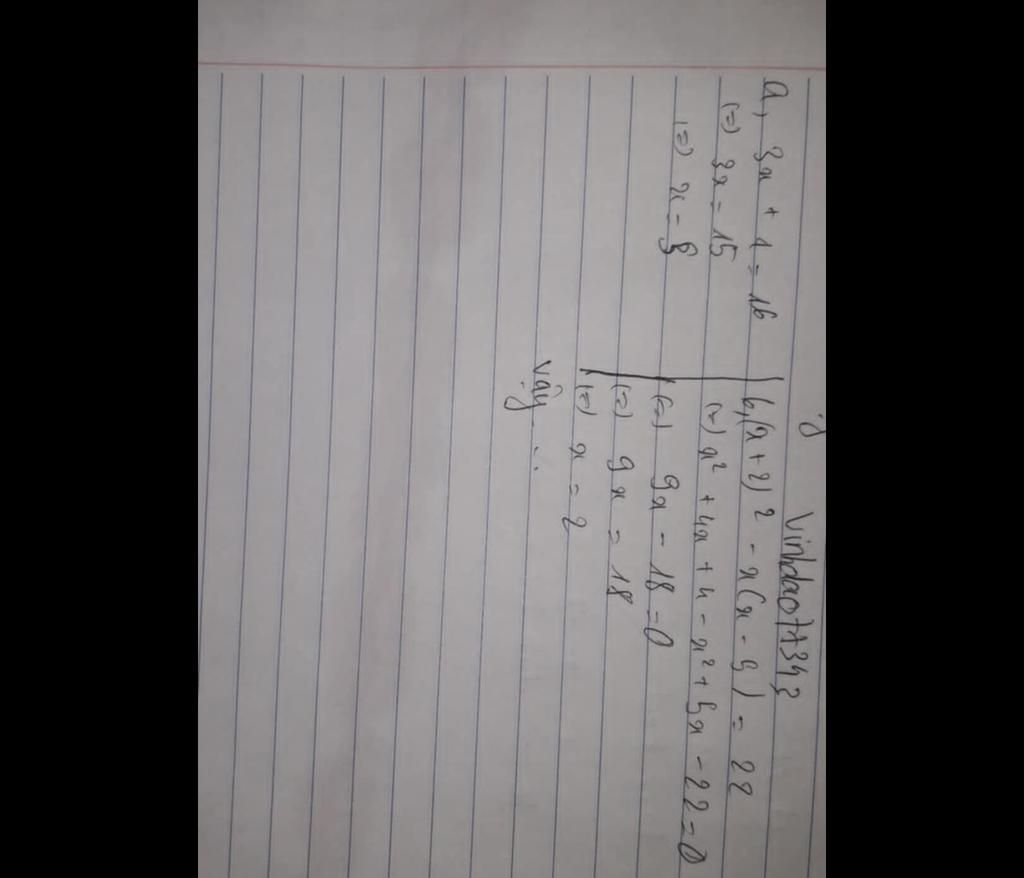 Vinhdao7434?
a, 3x + 1 = 16
(=) 3x = 15
(=) x = 5
b, (x + 2)2 - x(x - 5) = 22
(=) x² + 4x + 4 - x² + 5x - 22 = 0
(=) 9x - 18 = 0
(=) 9x = 18
(=) x = 2
Vậy ...